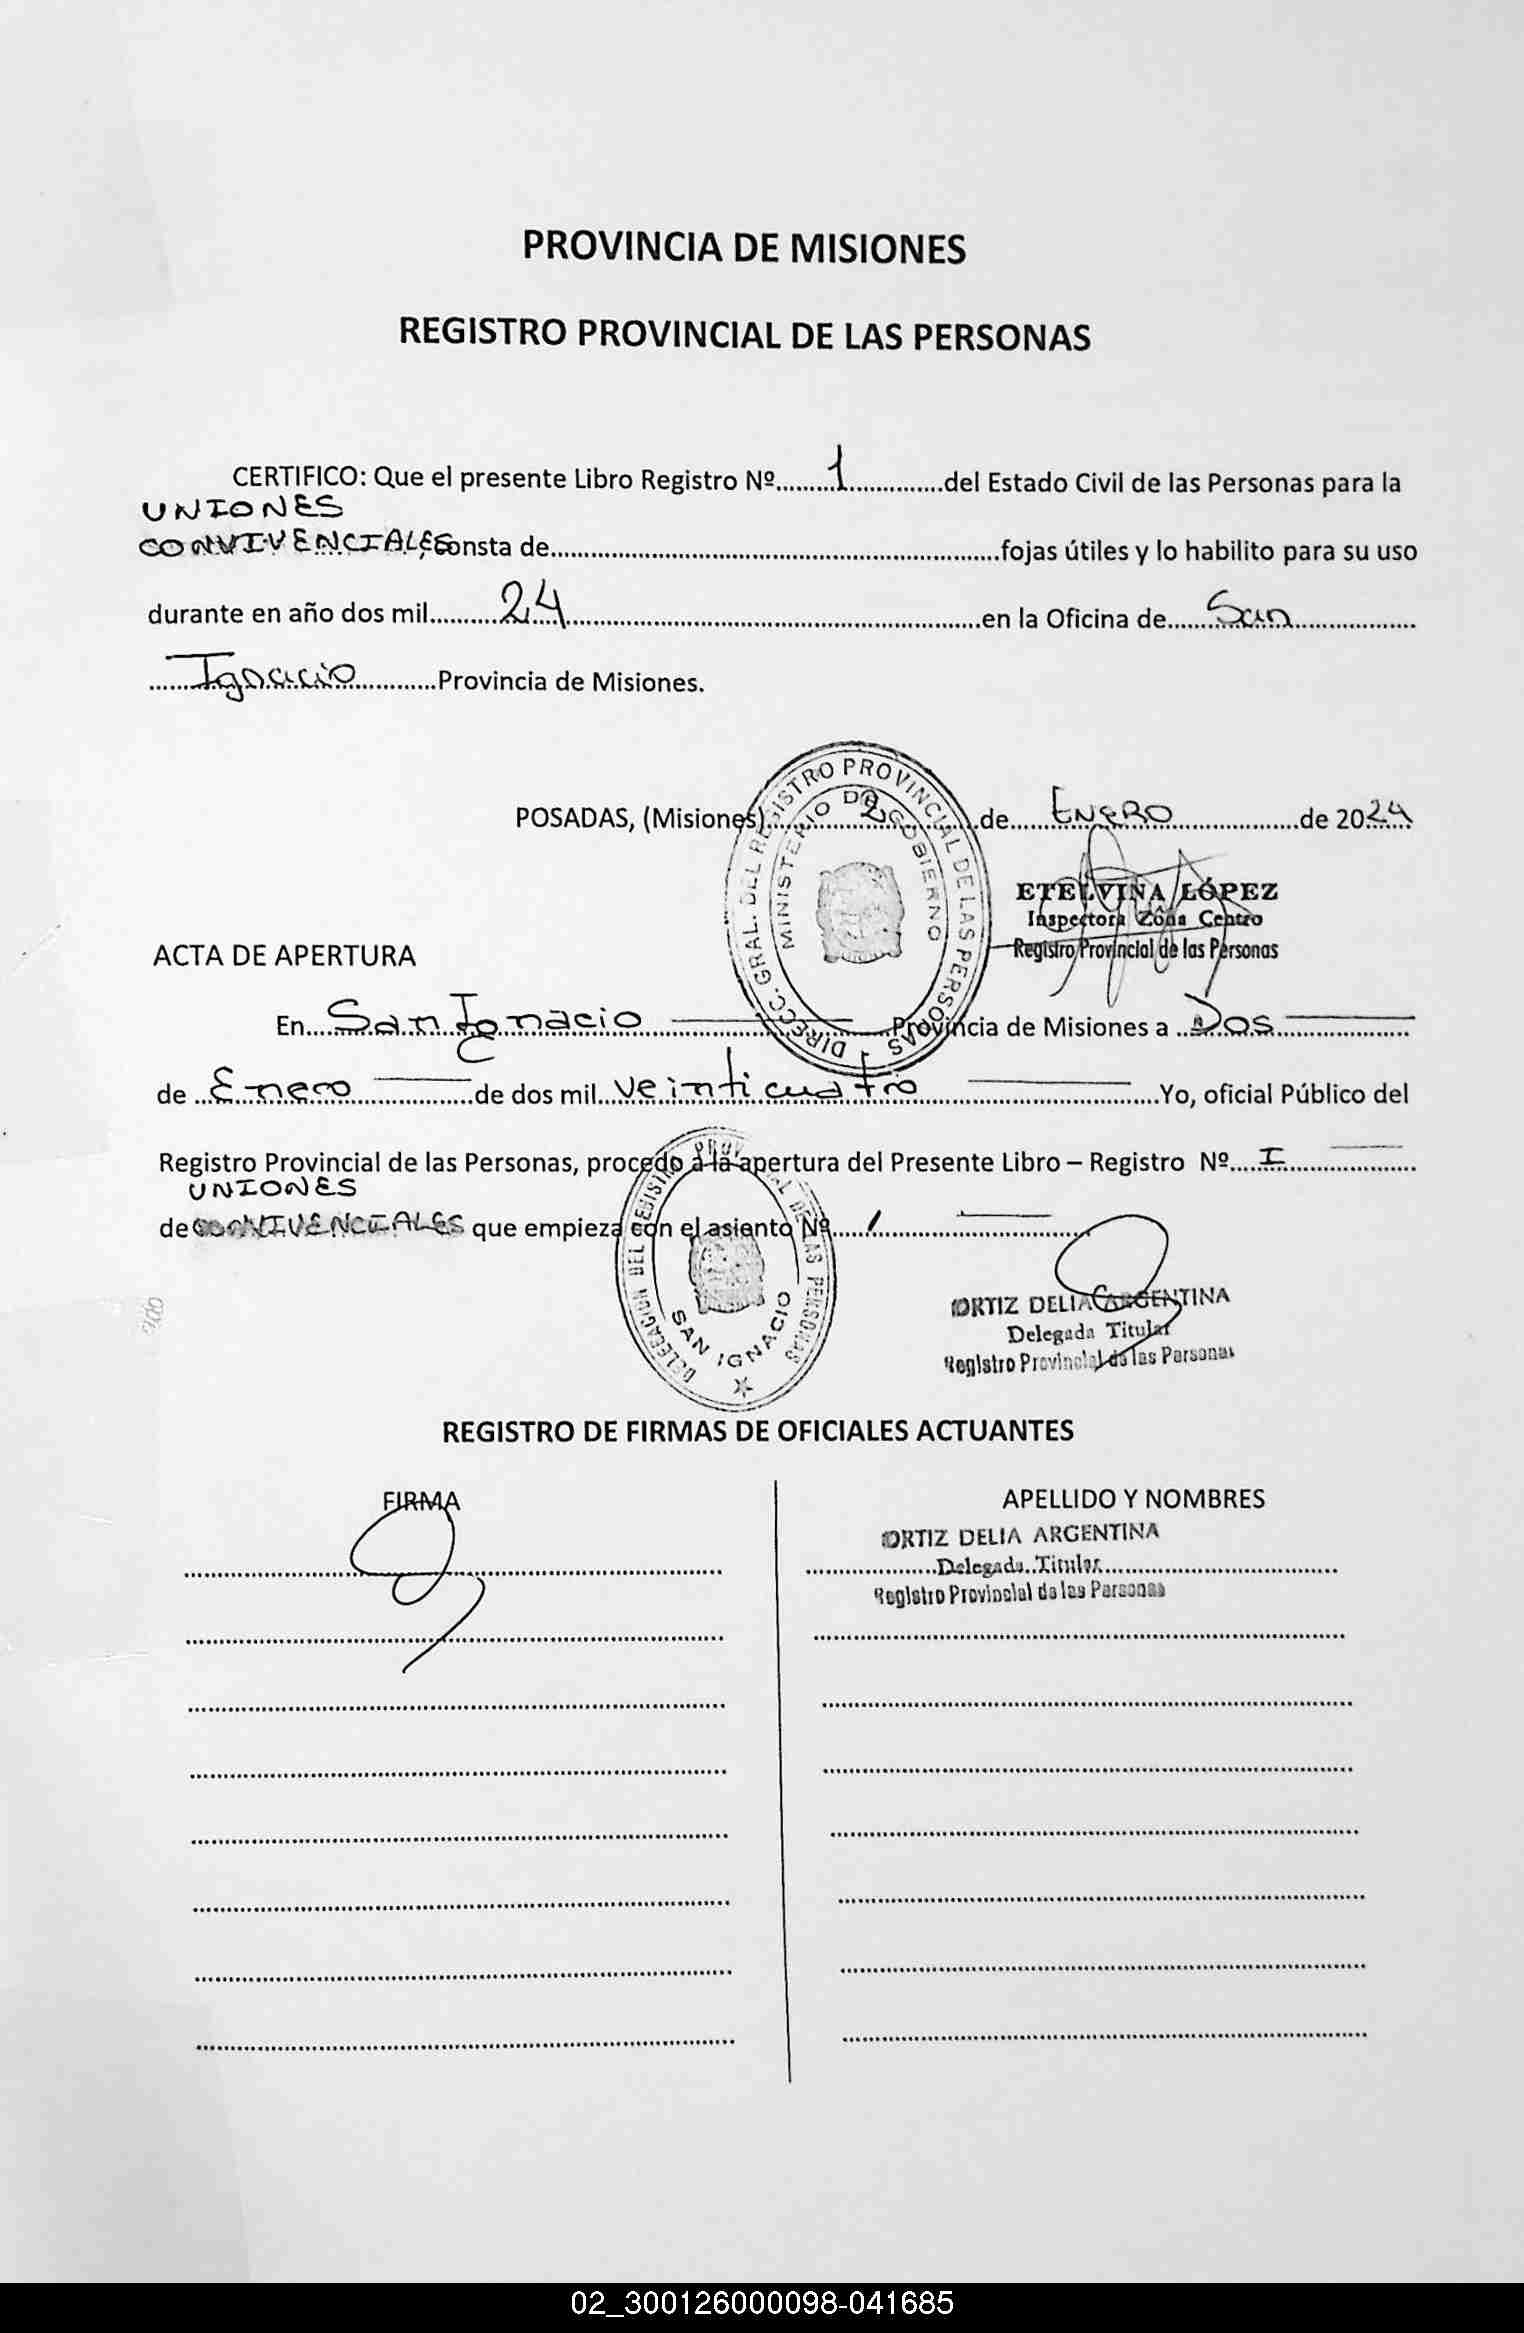 PROVINCIA DE MISIONES
REGISTRO PROVINCIAL DE LAS PERSONAS
CERTIFICO: Que el presente Libro Registro Nº..........1..............del Estado Civil de las Personas para la
UNIONES
CONVIVENCIALES, consta de..............................fojas útiles y lo habilito para su uso
durante en año dos mil..........24..............................en la Oficina de.......San..............
.......Ignacio............Provincia de Misiones.
POSADAS, (Misiones)..............2..............de.......ENERO..............de 2024
DIRECC. GRAL. DEL REGISTRO PROVINCIAL DE LAS PERSONAS
MINISTERIO DE GOBIERNO
ETELVINA LÓPEZ
Inspectora Zona Centro
Registro Provincial de las Personas
ACTA DE APERTURA
En....San Ignacio..............Provincia de Misiones a ..Dos..............
de ..Enero..............de dos mil...veinticuatro..............Yo, oficial Público del
Registro Provincial de las Personas, procedo a la apertura del Presente Libro – Registro Nº....I..............
UNIONES
de CONVIVENCIALES que empieza con el asiento Nº.....1..............
DELEGACION DEL REGISTRO PROVINCIAL DE LAS PERSONAS
SAN IGNACIO
ORTIZ DELIA ARGENTINA
Delegada Titular
Registro Provincial de las Personas
REGISTRO DE FIRMAS DE OFICIALES ACTUANTES
FIRMA
APELLIDO Y NOMBRES
ORTIZ DELIA ARGENTINA
Delegada Titular
Registro Provincial de las Personas
02_300126000098-041685